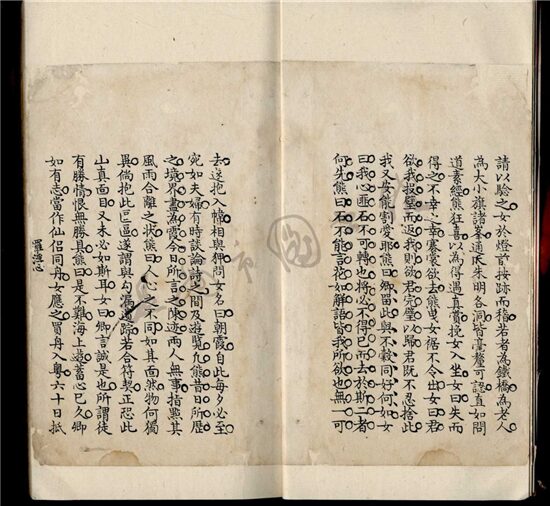 請以驗之女於燈前按跡而稽若者為鐵橋為老人
為大小旗諸峯通氏朱明各洞皆毫釐可證真如問
道素經熊狂喜以為得遇真賞挽女入坐女曰失而
得之不幸之幸褰裳欲去熊曳女裾不令出女曰君
欲我投璧而返我則欲君完璧以歸君既不忍捨此
我又安能割愛耶熊曰卿留此與不榖同好何如女
曰我心匪石不可轉也將必不得已而去於斯二者
何先熊曰石不能言花如解語皆我所欲也無一可
去遂抱入幃相與狎問女名曰朝霞自此每夕必至
宛如夫婦有時談論詩之間及遊覽凢熊昔日所歷
之境界盡為霞今日所言之陳迹兩人無事指點其
風雨合離之狀熊曰人心之不同如其面然物何獨
異倘抱此區區遂謂與勾漏遺踪若合符契正恐此
山真面目又未必如斯耳女曰卿言誠是也所謂徒
有勝情恨無勝具熊曰是不難海上遊蓄心已久卿
如有志當作仙侶同舟女應之買舟入粵六十日抵
羅浮心